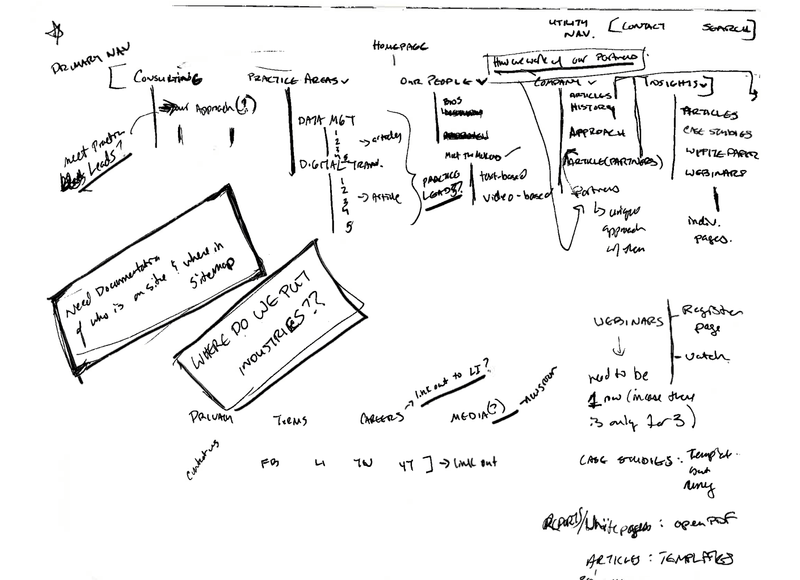 UTILITY NAV. [CONTACT SEARCH]
PRIMARY NAV
HOMEPAGE
How we work w/ our Partners
CONSULTING
PRACTICE AREAS
OUR PEOPLE
COMPANY
INSIGHTS
our Approach(?)
meet Practice
Leads?
DATA MGT
1
2
3
4
5
→ articles
DIGITAL TRAN.
1
2
3
4
5
→ Article
BIOS
PRACTICE
LEADS?
text-based
video-based
ARTICLES
HISTORY
APPROACH
ARTICLE (PARTNERS)
Partners
↳ unique
approach
w/ them
ARTICLES
CASE STUDIES
WHITE PAPER
WEBINARS
indiv.
pages.
Need Documentation
of who is on site & where in
sitemap
WHERE DO WE PUT
INDUSTRIES??
WEBINARS
Register
page
watch
need to be
1 now (in case they
is only 1 or 3)
PRIVACY
TERMS
CAREERS → link out to LI?
MEDIA(?) → newsroom
Contact us
FB LI TW YT ] → link out
CASE STUDIES:
but
REPORTS/White pages: open PDF
ARTICLES: TEMPLATES